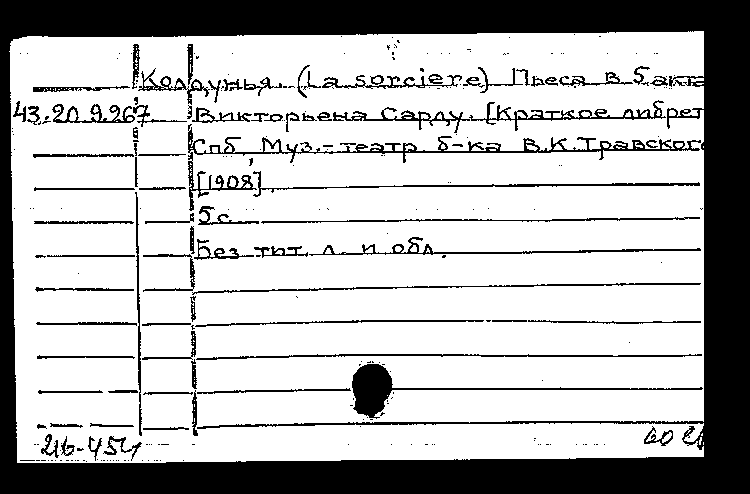 Колдунья. (La sorciere) Пьеса в 5 акта
43.20.9.267 Викторьена Сарду. [Краткое либрет
Спб, Муз.-театр. б-ка В.К.Травског
[1908].
5 с.
Без тит. л. и обл.
216-454